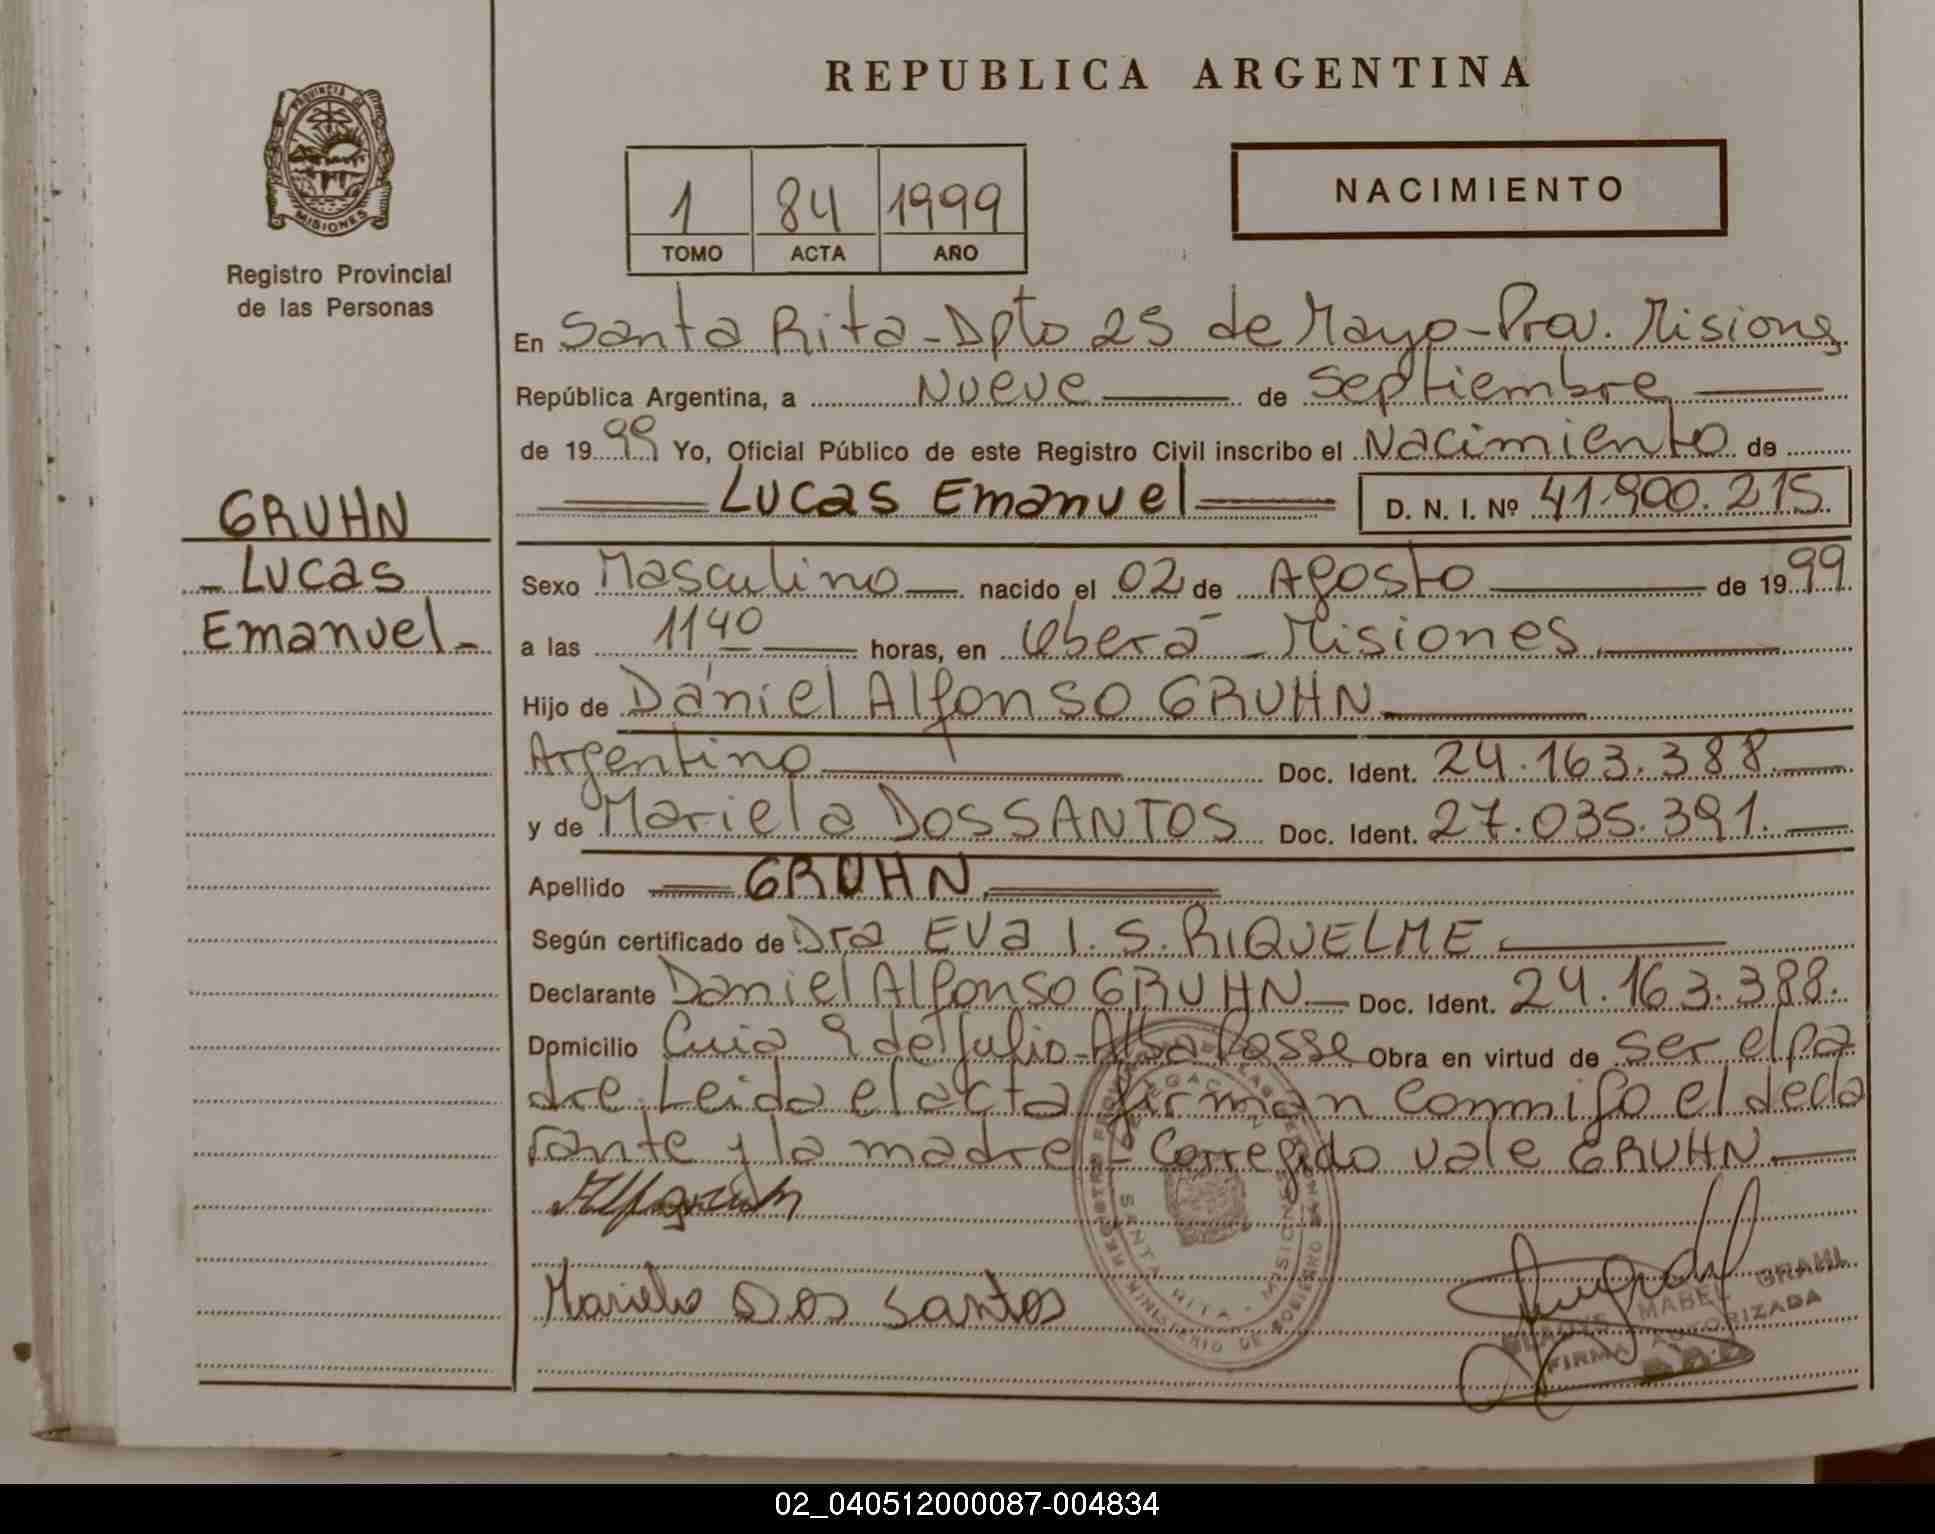 REPUBLICA ARGENTINA
PROVINCIA DE
MISIONES
Registro Provincial
de las Personas
1 84 1999
TOMO ACTA AÑO
NACIMIENTO
En Santa Rita - Dpto 25 de Mayo - Prov. Misiones
República Argentina, a Nueve de Septiembre
de 1999 Yo, Oficial Público de este Registro Civil inscribo el Nacimiento de
Lucas Emanuel D. N. I. Nº 41.900.215.
GRUHN
- Lucas
Emanuel -
Sexo Masculino nacido el 02 de Agosto de 1999
a las 1140 horas, en Oberá - Misiones
Hijo de Daniel Alfonso GRUHN
Argentino Doc. Ident. 24.163.388.
y de Mariela DOS SANTOS Doc. Ident. 27.035.391.
Apellido GRUHN
Según certificado de Dra EVa I. S. RIQUELME
Declarante Daniel Alfonso GRUHN Doc. Ident. 24.163.388.
Domicilio 9 de Julio - Alba Posse Obra en virtud de ser el pa
dre. Leida el acta firman conmigo el decla
rante y la madre - Corregido vale GRUHN
Mariela Dos Santos
SANTA RITA - MISIONES
MINISTERIO DE GOBIERNO
GLADYS MABEL GRAHL
FIRMA AUTORIZADA
02_040512000087-004834